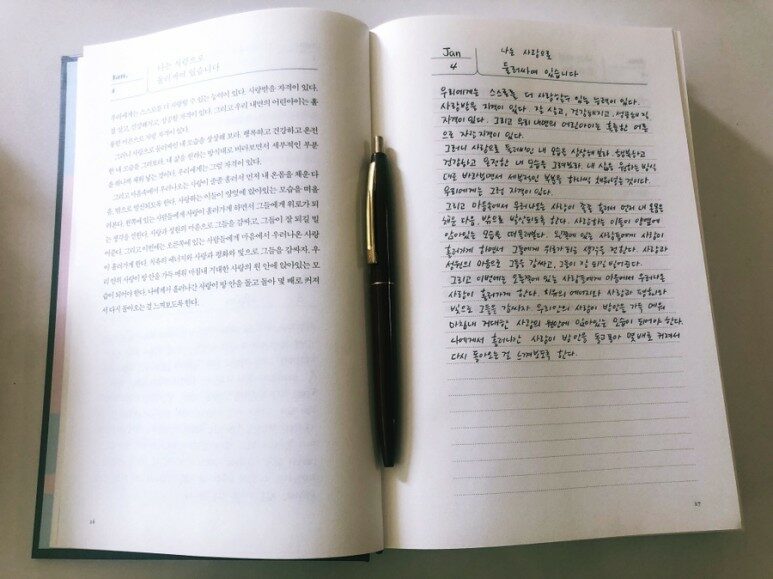 Jan.
4
나는 사랑으로
둘러싸여 있습니다
우리에게는 스스로를 더 사랑할 수 있는 능력이 있다. 사랑받을 자격이 있다.
잘 살고, 건강해지고, 성공할 자격이 있다. 그리고 우리 내면의 어린아이는 훌
륭한 어른으로 자랄 자격이 있다.
그러니 사랑으로 둘러싸인 내 모습을 상상해 보라. 행복하고 건강하고 온전
한 내 모습을 그려보라. 내 삶을 원하는 방식대로 바라보면서 세부적인 부분
을 하나씩 채워 넣는 것이다. 우리에게는 그럴 자격이 있다.
그리고 마음속에서 우러나오는 사랑이 줄줄 흘러서 먼저 내 온몸을 채운 다
음, 밖으로 발산되도록 한다. 사랑하는 이들이 양옆에 앉아있는 모습을 떠올
려본다. 왼쪽에 있는 사람들에게 사랑이 흘러가게 하면서 그들에게 위로가 되
는 생각을 전한다. 사랑과 성원의 마음으로 그들을 감싸고, 그들이 잘 되길 빌
어준다. 그리고 이번에는 오른쪽에 있는 사람들에게 마음에서 우러나온 사랑
이 흘러가게 한다. 치유의 에너지와 사랑과 평화와 빛으로 그들을 감싸자. 우
리 안의 사랑이 방 안을 가득 메워 마침내 거대한 사랑의 원 안에 앉아있는 모
습이 되어야 한다. 나에게서 흘러나간 사랑이 방 안을 돌고 돌아 몇 배로 커져
서 다시 돌아오는 걸 느껴보도록 한다.
26
Jan
4
나는 사랑으로
둘러싸여 있습니다
우리에게는 스스로를 더 사랑할수 있는 능력이 있다.
사랑받을 자격이 있다. 잘 살고, 건강해지고, 성공해질
자격이 있다. 그리고 우리 내면의 어린아이는 훌륭한 어른
으로 자랄 자격이 있다.
그러니 사랑으로 둘러싸인 내 모습을 상상해보라. 행복하고
건강하고 온전한 내 모습을 그려보라. 내 삶을 원하는 방식
대로 바라보면서 세부적인 부분을 하나씩 채워넣는 것이다.
우리에게는 그럴 자격이 있다.
그리고 마음속에서 우러나오는 사랑이 줄줄 흘러서 먼저 내 온몸을
채운 다음, 밖으로 발산되도록 한다. 사랑하는 이들이 양옆에
앉아있는 모습을 떠올려본다. 왼쪽에 있는 사람들에게 사랑이
흘러가게 하면서 그들에게 위로가 되는 생각을 전한다. 사랑과
성원의 마음으로 그들을 감싸고, 그들이 잘 되길 빌어준다.
그리고 이번에는 오른쪽에 있는 사람들에게 마음에서 우러나온
사랑이 흘러가게 한다. 치유의 에너지와 사랑과 평화와
빛으로 그들을 감싸자. 우리안의 사랑이 방안을 가득 메워
마침내 거대한 사랑의 원안에 앉아있는 모습이 되어야 한다.
나에게서 흘러나간 사랑이 방 안을 돌고돌아 몇배로 커져서
다시 돌아오는 걸 느껴보도록 한다.
27